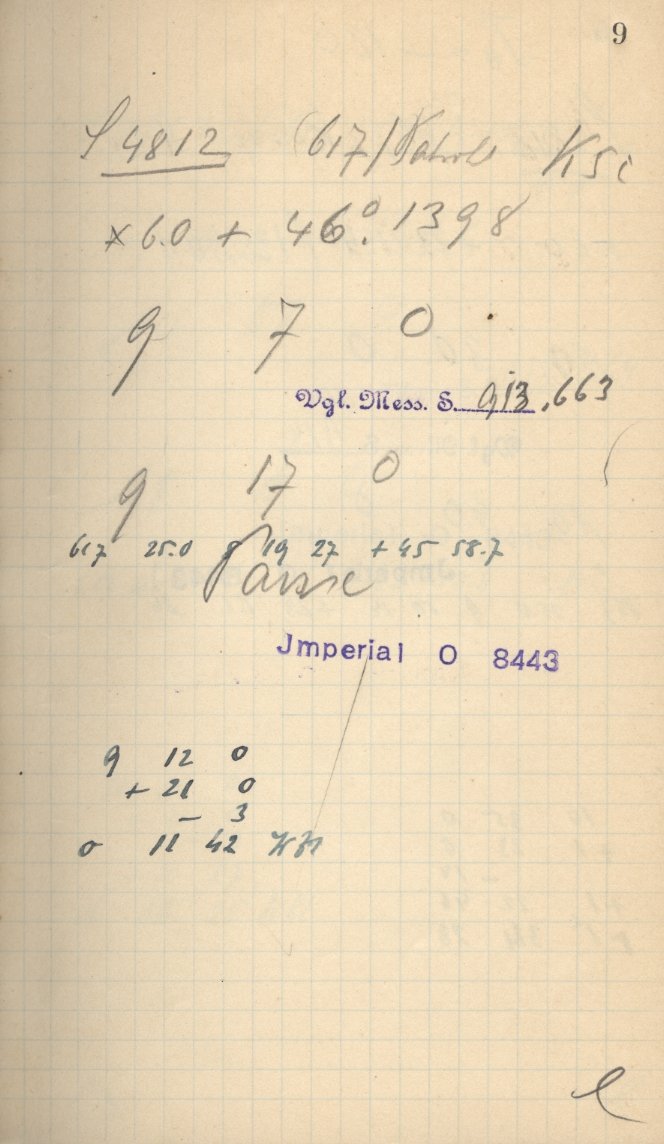 9
S 4812 (617) Patrol
* 6.0 + 46° 1398
9 7 0
Vgl. Mess. S. 913,663
9 17 0
617 25.0 8 19 27 + 45 58.7
Pause
Jmperial O 8443
9 12 0
+ 21 0
- 3
0 11 42